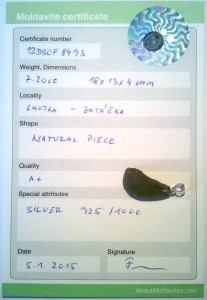 Moldavite certificate
Certificate number
12DSOF8493
Weight, Dimensions
7.20ct 18x13x4 mm
Locality
LHOTKA - ZATÁČKA
Shape
NATURAL PIECE
Quality
A+
Special attributes
SILVER 925/1000
Date
Signature
5.1.2015
AboutMoldavites.com